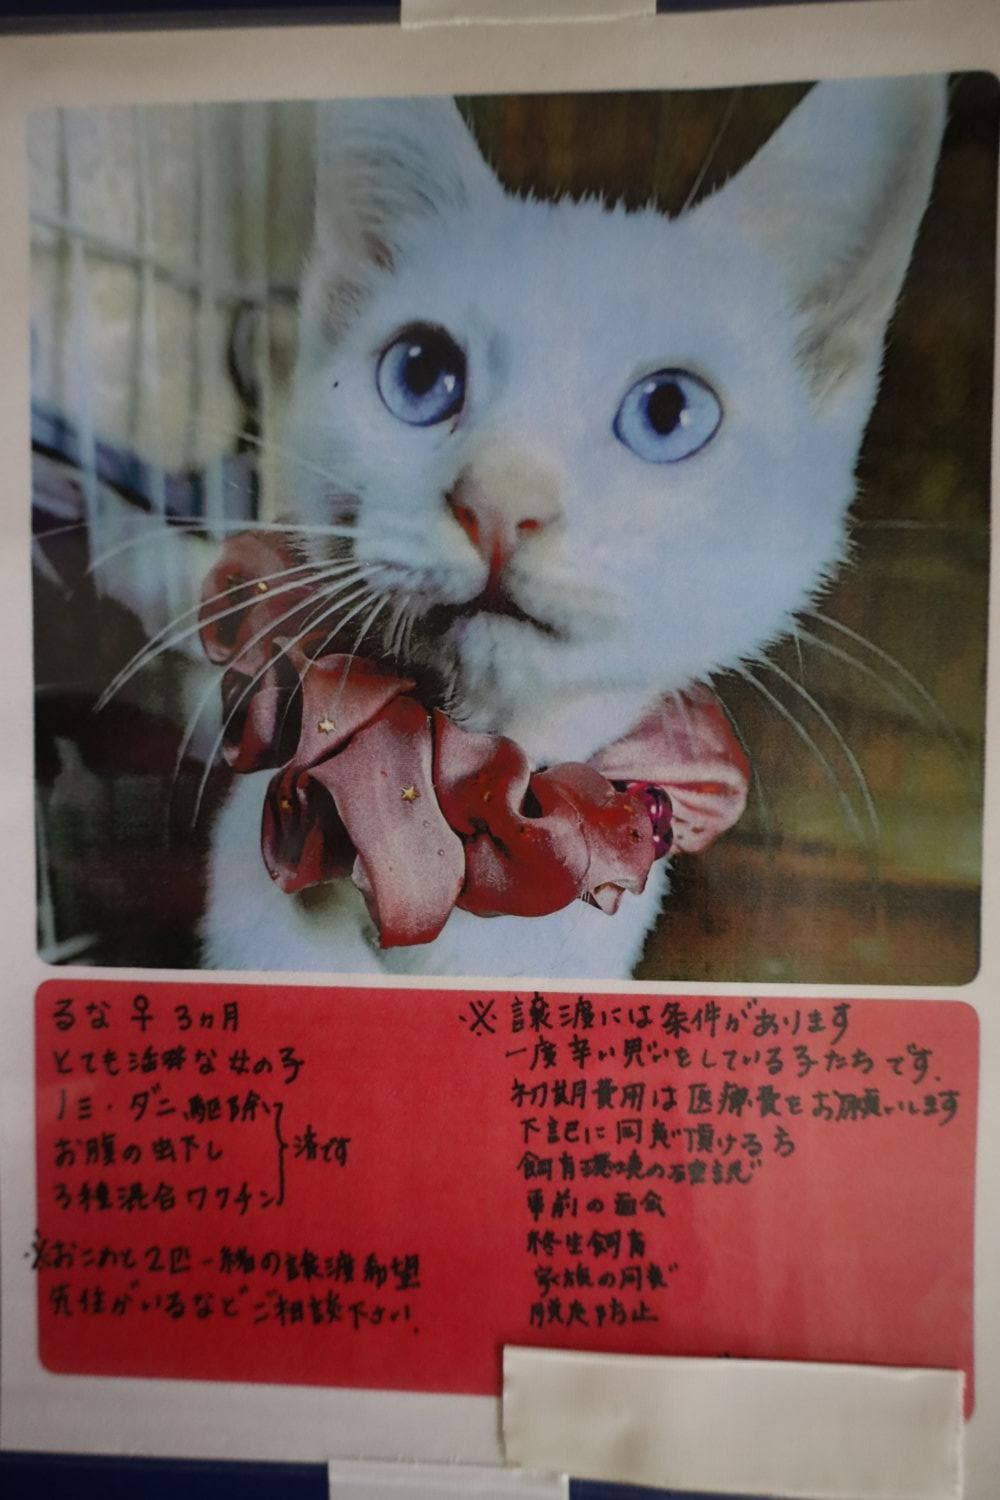 るな ♀ 3ヵ月
とても活発な女の子
ノミ・ダニ駆除
お腹の虫下し
3種混合ワクチン
済です
※おこめと2匹一緒の譲渡希望
先住がいるなどご相談下さい.
※譲渡には条件があります
一度辛い思いをしている子たちです.
初期費用は医療費をお願いします
下記に同意頂ける方
飼育環境の確認
事前の面会
終生飼育
家族の同意
脱走防止